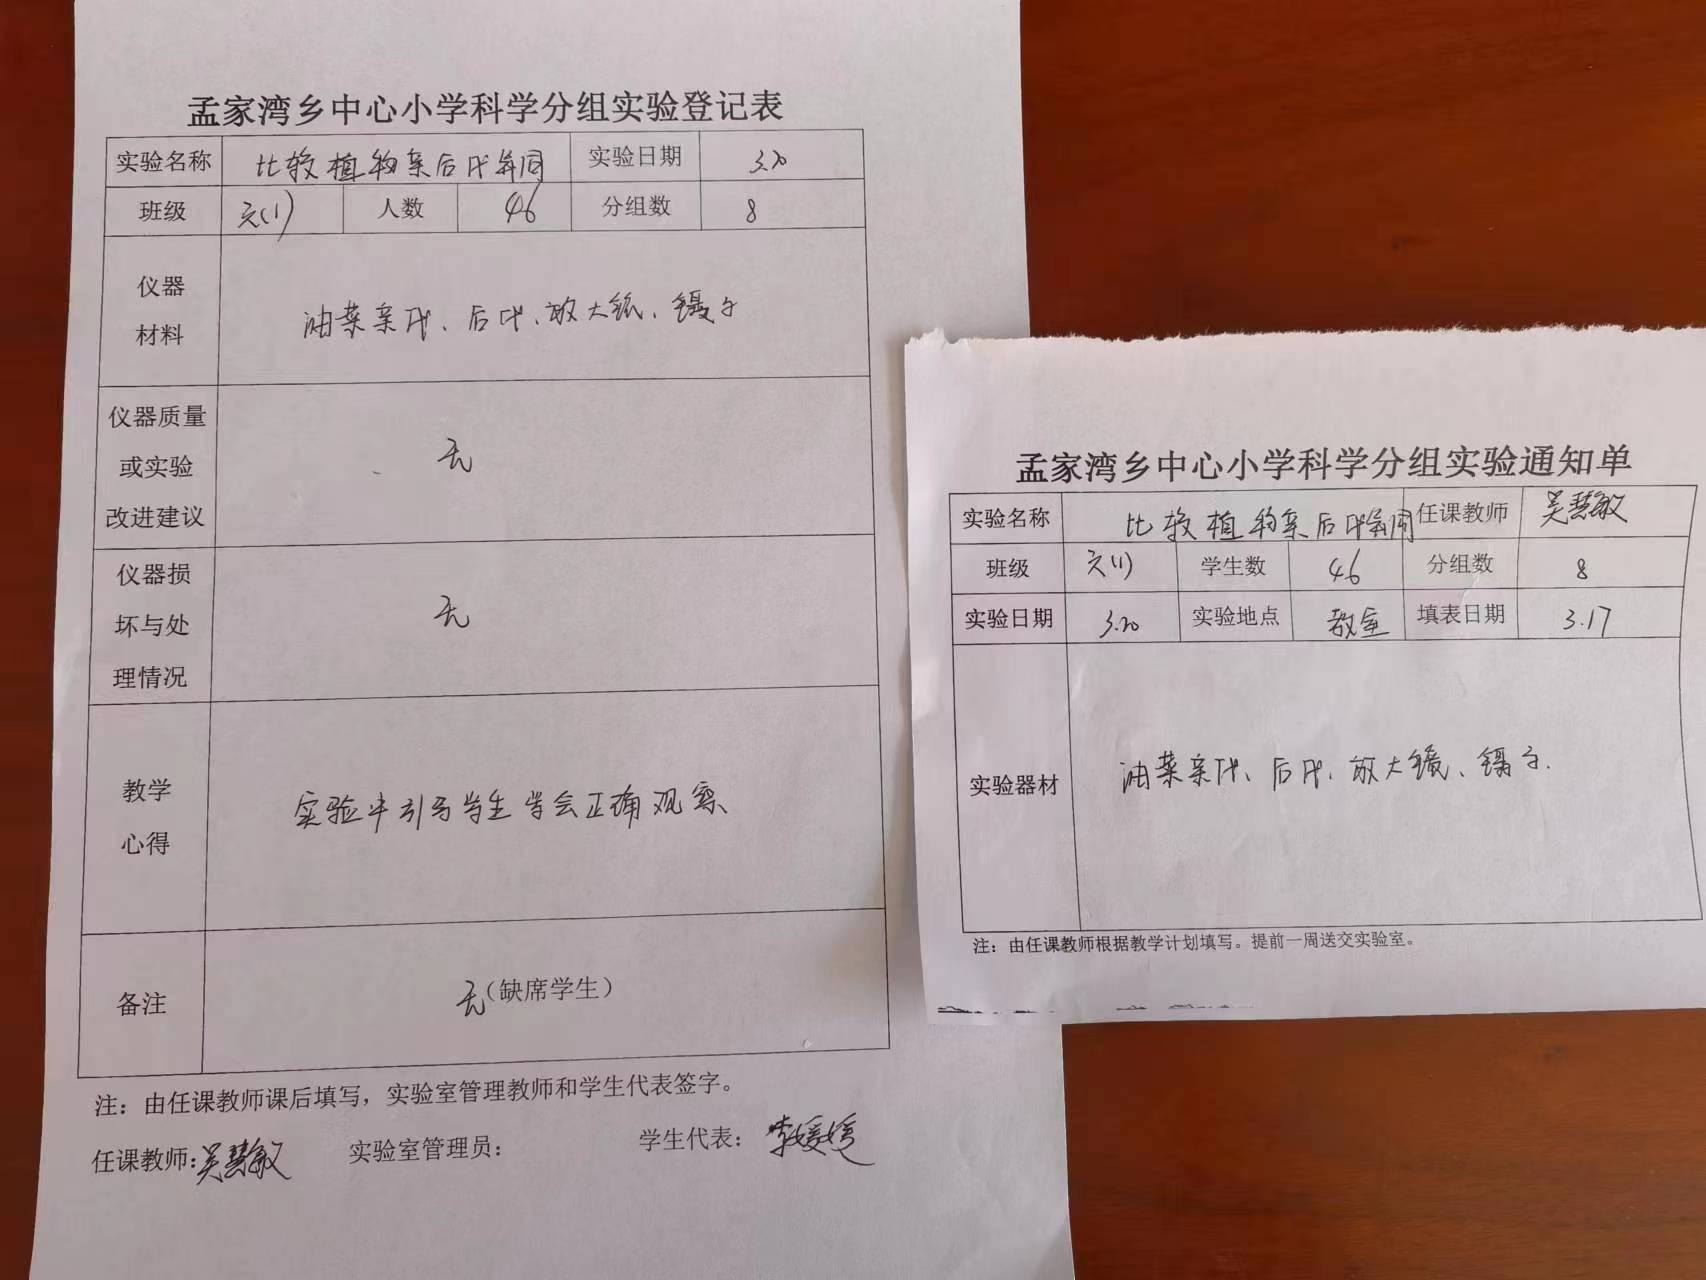 孟家湾乡中心小学科学分组实验登记表
实验名称 比较植物亲后代异同 实验日期 3.20
班级 六(1) 人数 46 分组数 8
仪器
材料
油菜亲代、后代、放大镜、镊子
仪器质量
或实验
改进建议
无
仪器损
坏与处
理情况
无
教学
心得
实验中引导学生学会正确观察
备注 无(缺席学生)
注：由任课教师课后填写，实验室管理教师和学生代表签字。
任课教师:吴慧敏 实验室管理员: 学生代表: 李媛媛
孟家湾乡中心小学科学分组实验通知单
实验名称 比较植物亲后代异同 任课教师 吴慧敏
班级 六(1) 学生数 46 分组数 8
实验日期 3.20 实验地点 教室 填表日期 3.17
实验器材 油菜亲代、后代、放大镜、镊子.
注：由任课教师根据教学计划填写。提前一周送交实验室。